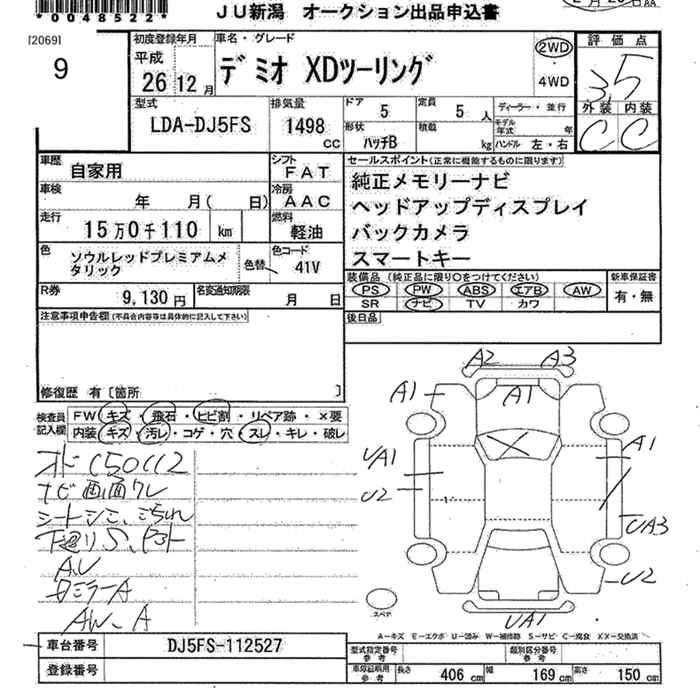 *0048522*
JU新潟 オークション出品申込書
[2069]
9
初度登録年月
平成
26年12月
車名・グレード
デミオ XDツーリング
2WD
4WD
評価点
3.5
外装 内装
C C
型式
LDA-DJ5FS
排気量
1498 cc
ドア 5
定員 5人
形状 ハッチB
積載 kg
ディーラー・並行
モデル年式 年
ハンドル 左・右
車歴 自家用
シフト FAT
車検 年 月( 日)
冷房 AAC
走行 15万0千110 km
燃料 軽油
色 ソウルレッドプレミアムメタリック
色替
色コード 41V
R券 9,130円
名変通知期限 月 日
セールスポイント(正常に機能するものに限ります)
純正メモリーナビ
ヘッドアップディスプレイ
バックカメラ
スマートキー
装備品(純正品に限り○をつけてください)
新車保証書
PS PW ABS エアB AW
有・無
SR ナビ TV カワ
後日品
注意事項申告欄(不具合内容等は具体的に記入して下さい)
修復歴 有〔箇所 〕
検査員記入欄
FW キズ・飛石・ヒビ割・リペア跡・×要
内装 キズ・汚レ・コゲ・穴・スレ・キレ・破レ
ナビ画面クレ
シートシミ、
A.U
AW. A
A2 A3
A1 A1
UA1 A1
U2
UA3
U2
UA1
スペア
A―キズ E―エクボ U―凹み W―補修跡 S―サビ C―腐食 XX―交換済
車台番号 DJ5FS-112527
登録番号
型式指定番号 参考
類別区分番号 参考
車庫証明用 参考
長さ 406 cm
幅 169 cm
高さ 150 cm